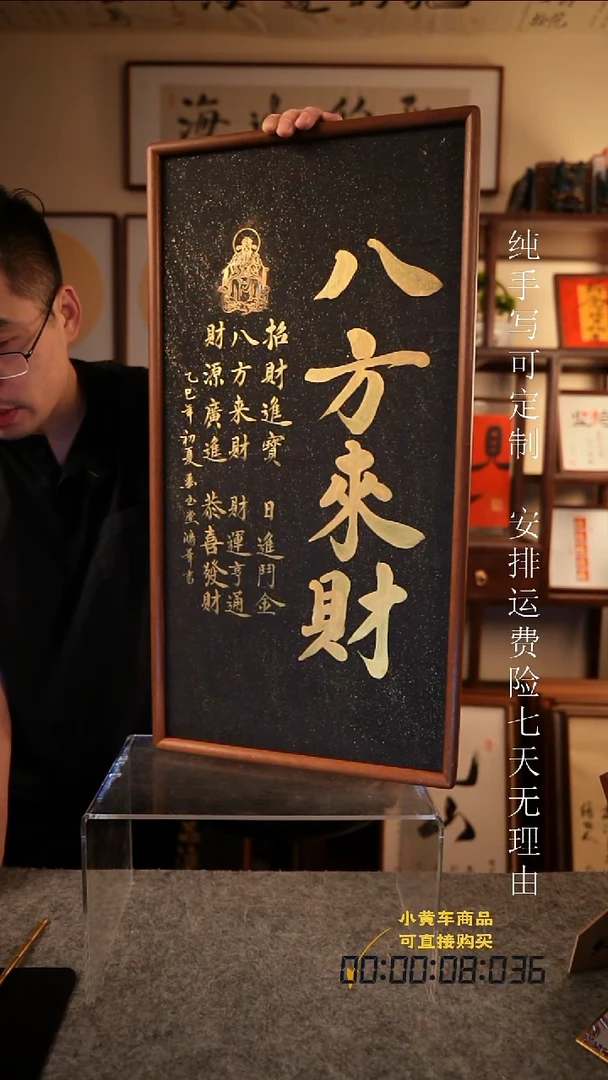 八方來財
招財進寶 日進鬥金
八方来財 財運亨通
財源廣進 恭喜發財
乙巳年初夏
纯手写可定制 安排运费险七天无理由
小黄车商品
可直接购买
00:00:08:036